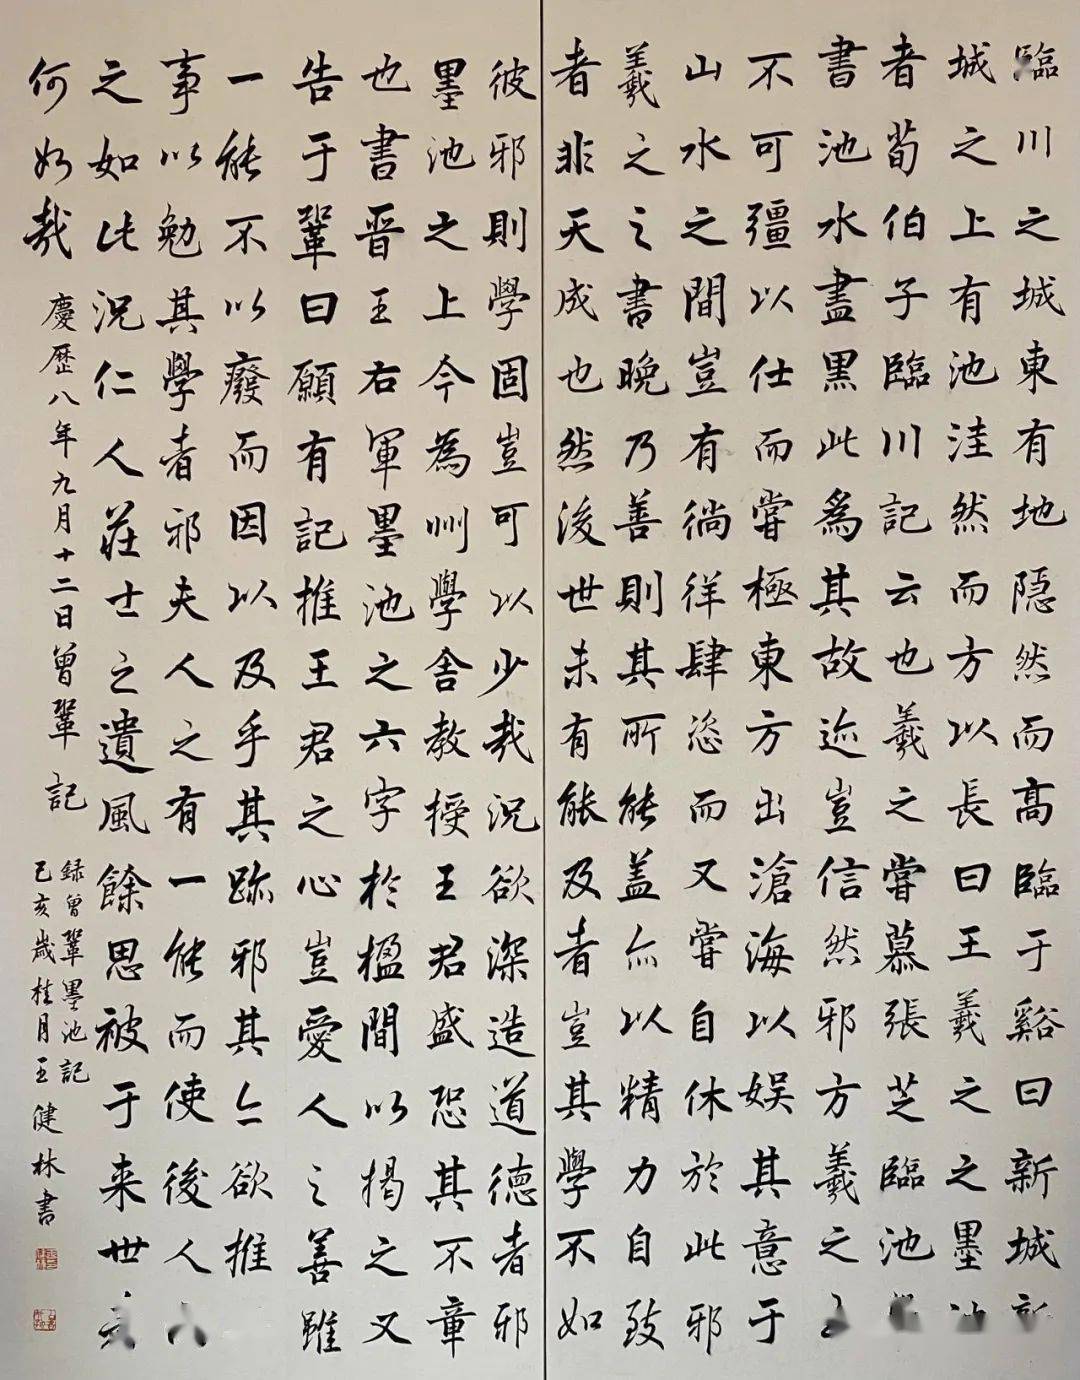 臨川之城東有地隱然而高臨于谿曰新城新
城之上有池洼然而方以長曰王羲之之墨池
者荀伯子臨川記云也羲之嘗慕張芝臨池
書池水盡黑此為其故迹豈信然邪方羲之
不可彊以仕而嘗極東方出滄海以娛其意于
山水之間豈有徜徉肆恣而又嘗自休於此邪
羲之之書晚乃善則其所能蓋亦以精力自致
者非天成也然後世未有能及者豈其學不如
彼邪則學固豈可以少哉況欲深造道德者邪
墨池之上今為州學舍教授王君盛恐其不章
也書晉王右軍墨池之六字於楹間以揭之又
告于鞏曰願有記推王君之心豈愛人之善雖
一能不以廢而因以及乎其跡邪其亦欲推
事以勉其學者邪夫人之有一能而使後人
之如此況仁人莊士之遺風餘思被于来世
何如哉 慶歷八年九月十二日曾鞏記
録曾鞏墨池記
己亥歲桂月王健林書